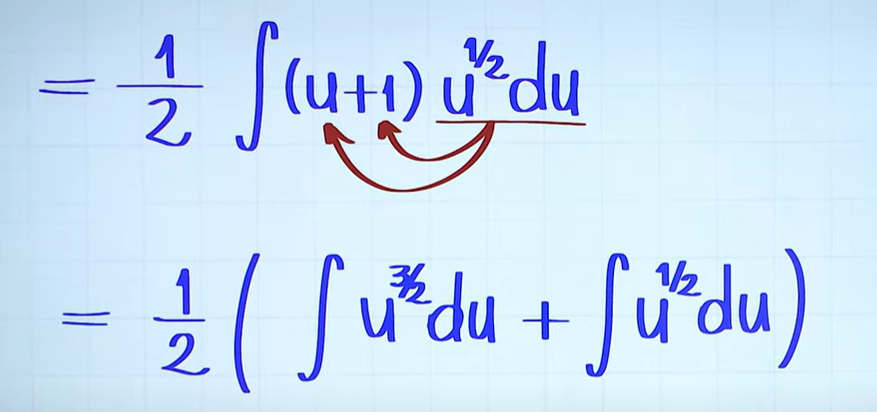 = 1/2 ∫(u+1) u^1/2 du
= 1/2 ( ∫ u^3/2 du + ∫ u^1/2 du )